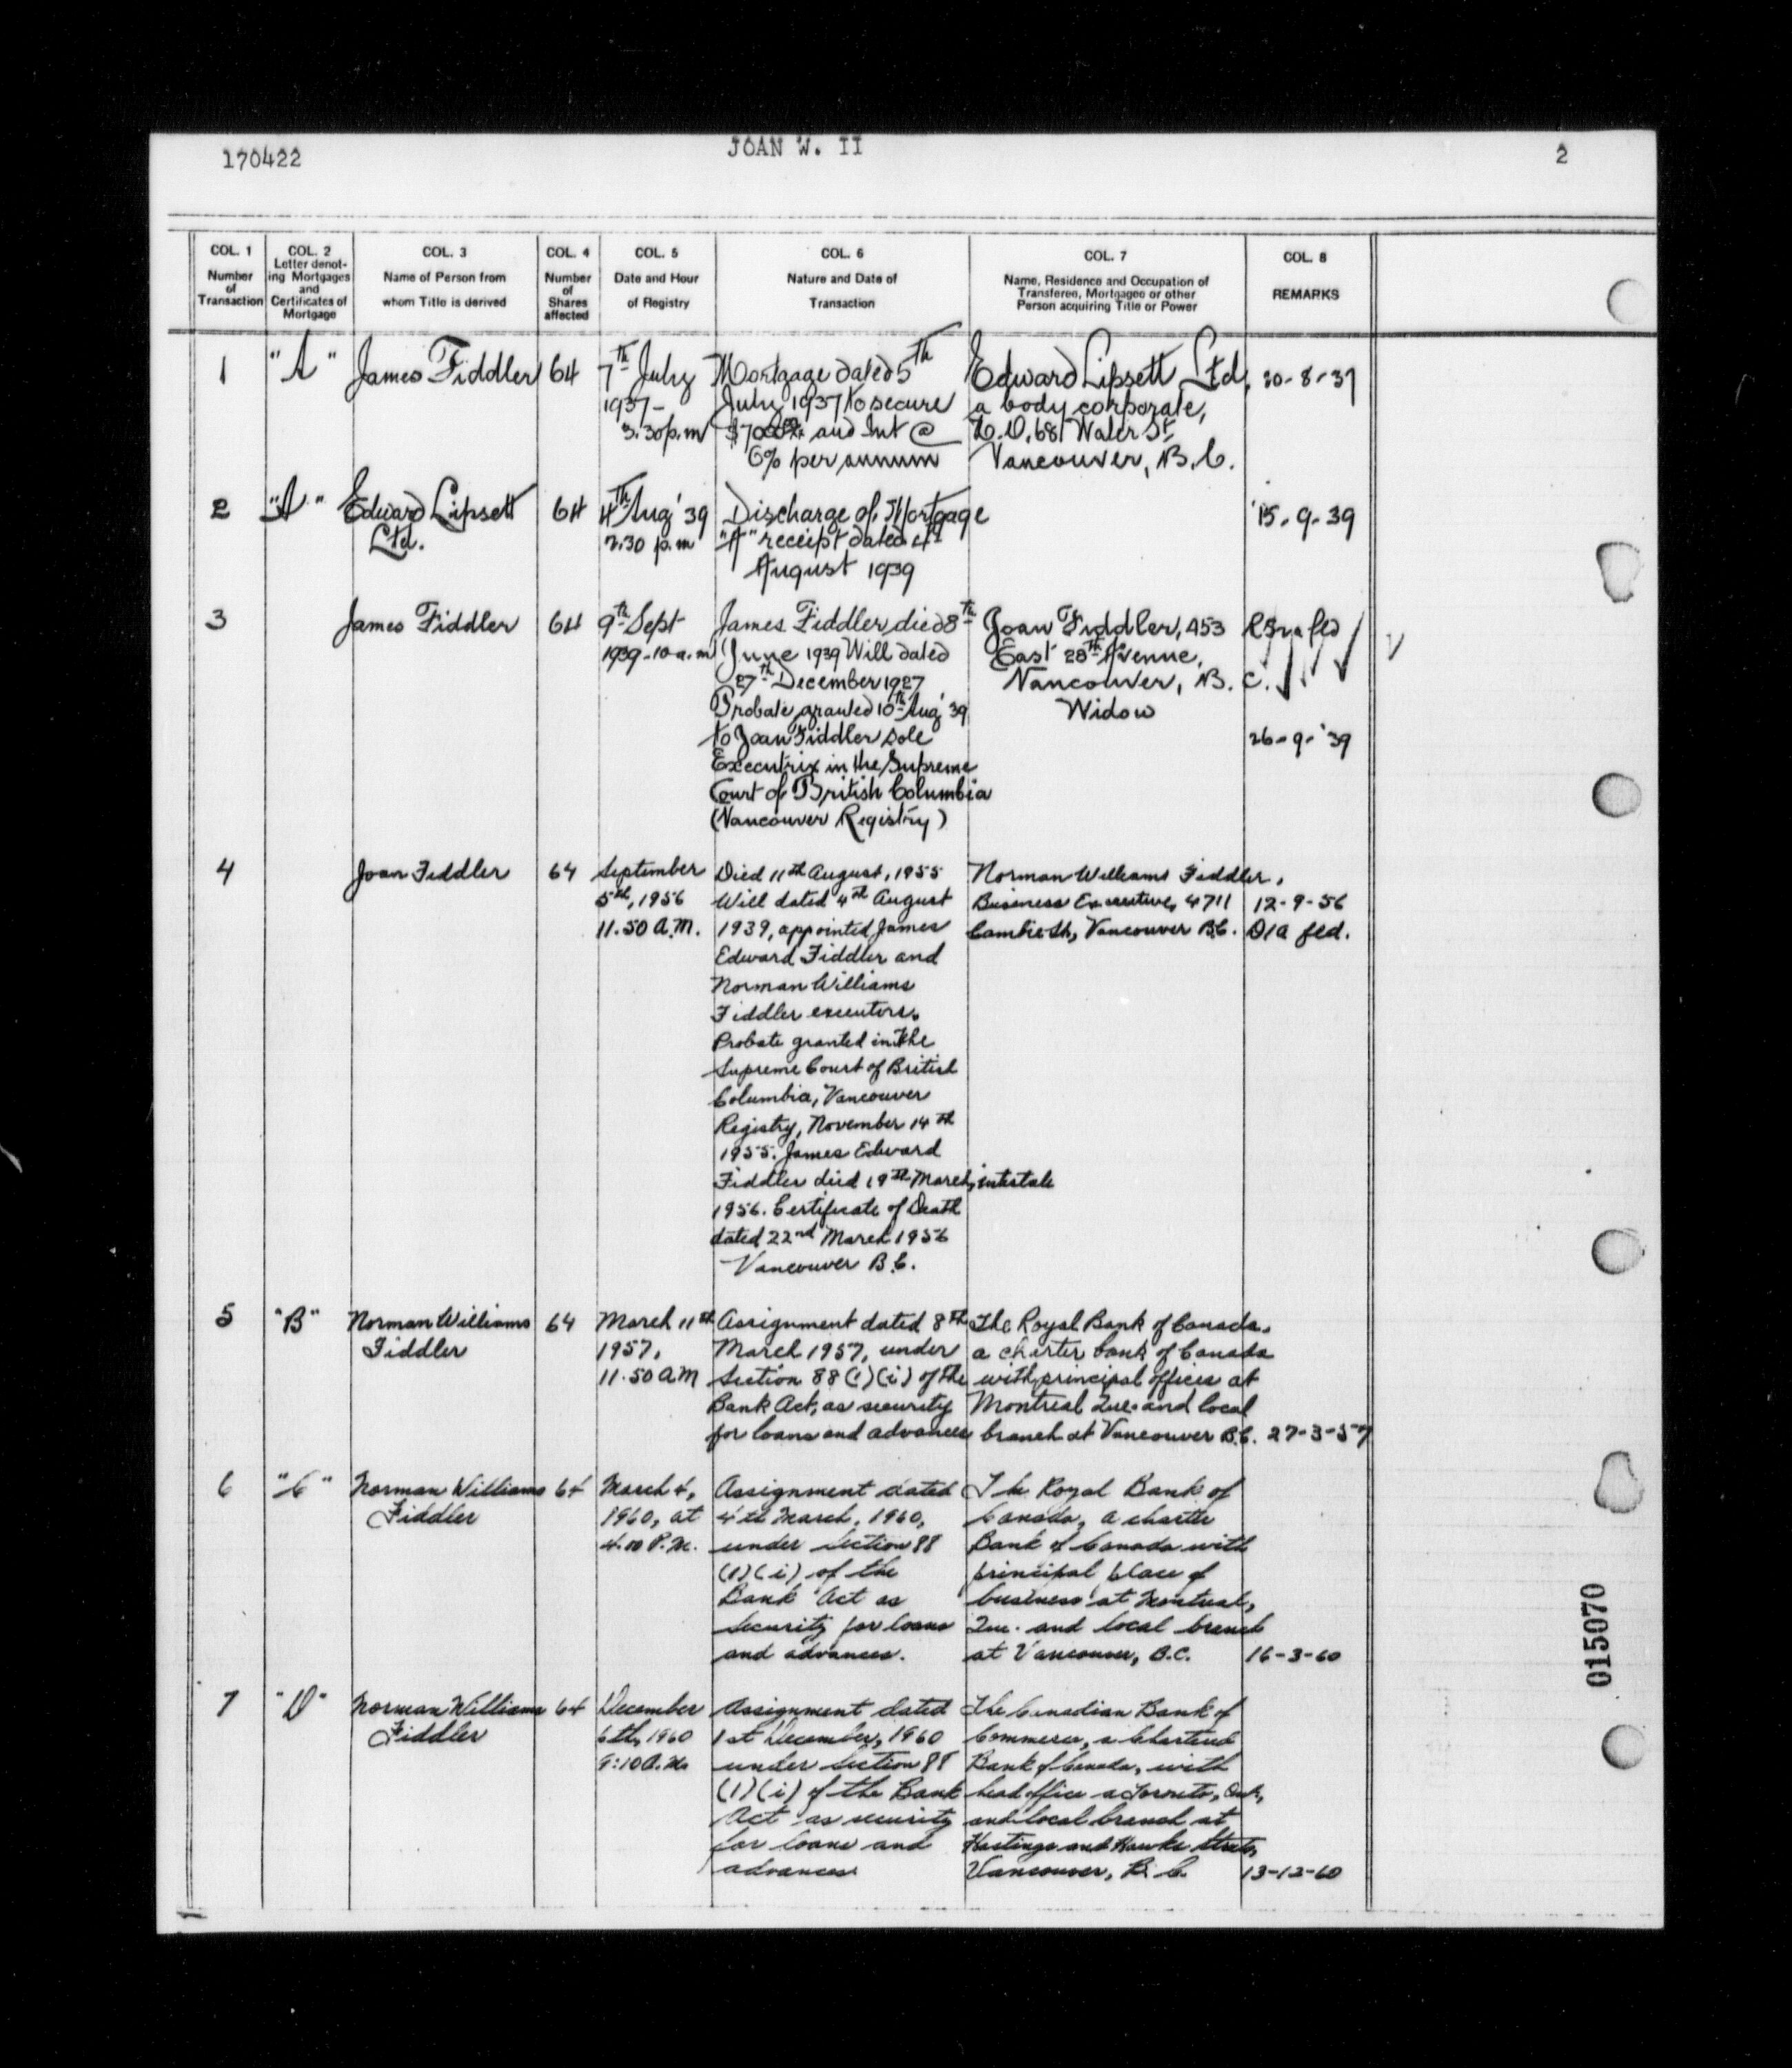 170422
JOAN W. II
2
COL. 1
Number
of
Transaction
COL. 2
Letter denot-
ing Mortgages
and
Certificates of
Mortgage
COL. 3
Name of Person from
whom Title is derived
COL. 4
Number
of
Shares
affected
COL. 5
Date and Hour
of Registry
COL. 6
Nature and Date of
Transaction
COL. 7
Name, Residence and Occupation of
Transferee, Mortgagee or other
Person acquiring Title or Power
COL. 8
REMARKS
1
"A"
James Fiddler
64
7th July
1937-
3.30 p.m
Mortgage dated 5th
July 1937 to secure
and Int @
6% per annum
Edward Lipsett Ltd,
a body corporate,
68 Water St,
Vancouver, B.C.
2
"A"
Edward Lipsett
Ltd.
64
4th Aug' 39
2.30 p.m
Discharge of Mortgage
"A" receipt dated 4th
August 1939
15-9-39
3
James Fiddler
64
9th Sept
1939-10 a.m
James Fiddler died 8th
June 1939 Will dated
27th December 1927
Probate granted 10th Aug' 39
to Joan Fiddler sole
Executrix in the Supreme
Court of British Columbia
(Vancouver Registry)
Joan Fiddler, 453
East 28th Avenue,
Vancouver, B.C.
Widow
26-9-'39
4
Joan Fiddler
64
September
5th, 1956
11.50 A.M.
Died 11th August, 1955
Will dated 4th August
1939, appointed James
Edward Fiddler and
Norman Williams
Fiddler executors.
Probate granted in the
Supreme Court of British
Columbia, Vancouver
Registry, November 14th
1955. James Edward
Fiddler died 19th March, intestate
1956. Certificate of Death
dated 22nd March 1956
Vancouver B.C.
Norman Williams Fiddler,
Business Executive, 4711
Cambie St, Vancouver B.C.
12-9-56
D/a fld.
5
"B"
Norman Williams
Fiddler
64
March 11th
1957,
11.50 AM
Assignment dated 8th
March 1957, under
Section 88(1)(i) of the
Bank Act, as security
for loans and advances
The Royal Bank of Canada,
a charter bank of Canada
with principal offices at
Montreal Que. and local
branch at Vancouver B.C.
27-3-57
6
"C"
Norman Williams
Fiddler
64
March 4,
1960, at
4.10 P.M.
Assignment dated
4th March, 1960,
under Section 88
(1)(i) of the
Bank Act as
security for loans
and advances.
The Royal Bank of
Canada, a charter
Bank of Canada with
principal place of
business at Montreal,
Que. and local branch
at Vancouver, B.C.
16-3-60
7
"D"
Norman Williams
Fiddler
64
December
6th, 1960
9:10 A.M.
Assignment dated
1st December, 1960
under Section 88
(1)(i) of the Bank
Act as security
for loans and
advances
The Canadian Bank of
Commerce, a Chartered
Bank of Canada, with
head office a Toronto, Ont.,
and local branch at
Hastings and Hawks Streets,
Vancouver, B.C.
13-12-60
015070